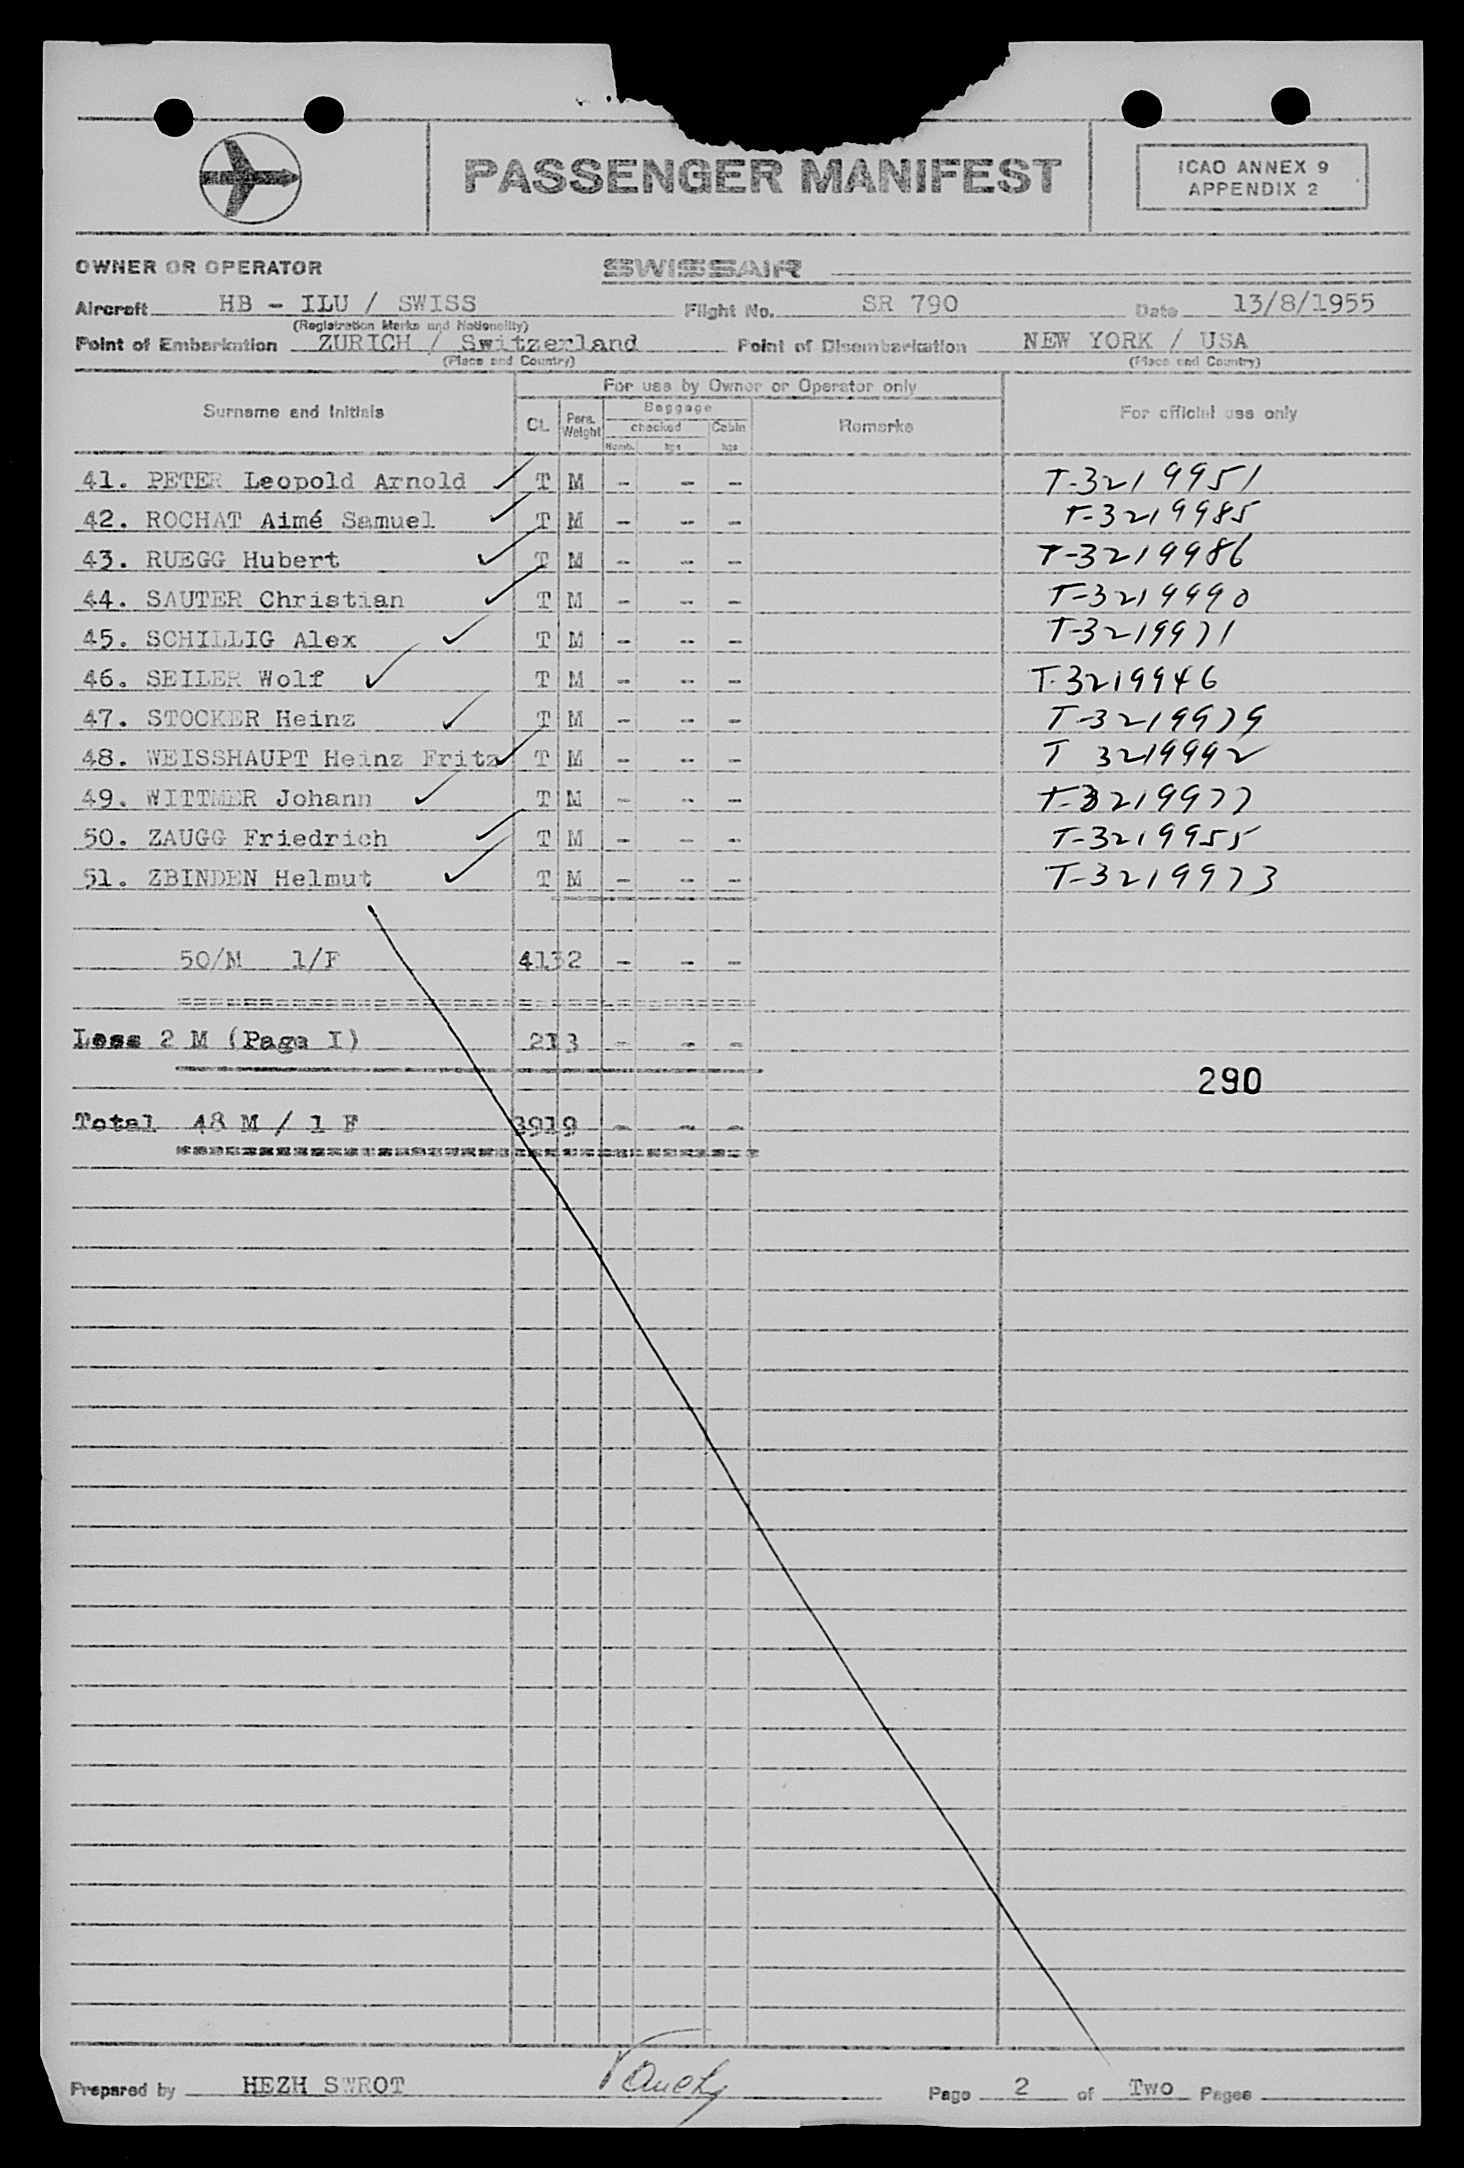 PASSENGER MANIFEST
ICAO ANNEX 9
APPENDIX 2
OWNER OR OPERATOR SWISSAIR
Aircraft HB - ILU / SWISS Flight No. SR 790 Date 13/8/1955
(Registration Marks and Nationality)
Point of Embarkation ZURICH / Switzerland Point of Disembarkation NEW YORK / USA
(Place and Country) (Place and Country)
Surname and Initials
For use by Owner or Operator only
Cl.
Pers. Weight
Baggage
checked Cabin
Numb. kgs kgs
Remarks
For official use only
41. PETER Leopold Arnold ✓ T M - - - T-3219951
42. ROCHAT Aimé Samuel ✓ T M - - - T-3219985
43. RUEGG Hubert ✓ T M - - - T-3219986
44. SAUTER Christian ✓ T M - - - T-3219990
45. SCHILLIG Alex ✓ T M - - - T-3219971
46. SEILER Wolf ✓ T M - - - T-3219946
47. STOCKER Heinz ✓ T M - - - T-3219979
48. WEISSHAUPT Heinz Fritz ✓ T M - - - T 3219992
49. WITTMER Johann ✓ T M - - - T-3219977
50. ZAUGG Friedrich ✓ T M - - - T-3219955
51. ZBINDEN Helmut ✓ T M - - - T-3219973
50/M 1/F 4132 - - -
Less 2 M (Page I) 213 - - -
290
Total 48 M / 1 F 3919 - - -
Prepared by HEZH SWROT Page 2 of Two Pages